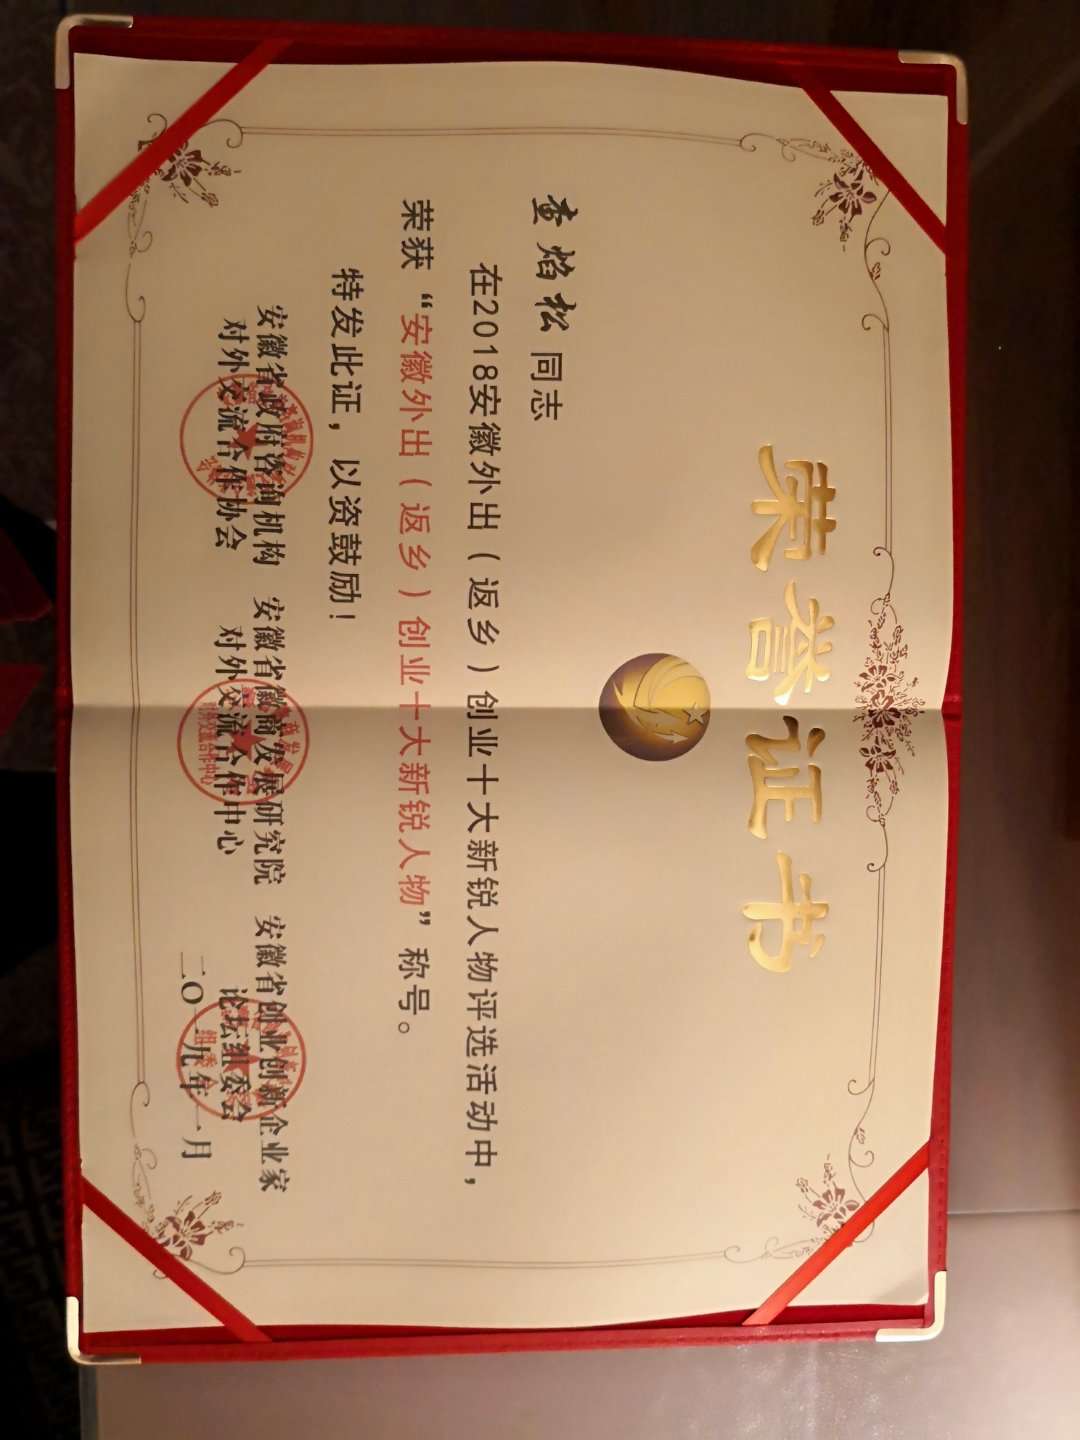 荣誉证书
查焰松 同志
在2018安徽外出（返乡）创业十大新锐人物评选活动中，
荣获“安徽外出（返乡）创业十大新锐人物”称号。
特发此证，以资鼓励！
安徽省政府咨询机构 安徽省徽商发展研究院 安徽省创业创新企业家
对外交流合作协会 对外交流合作中心 论坛组委会
二〇一九年一月